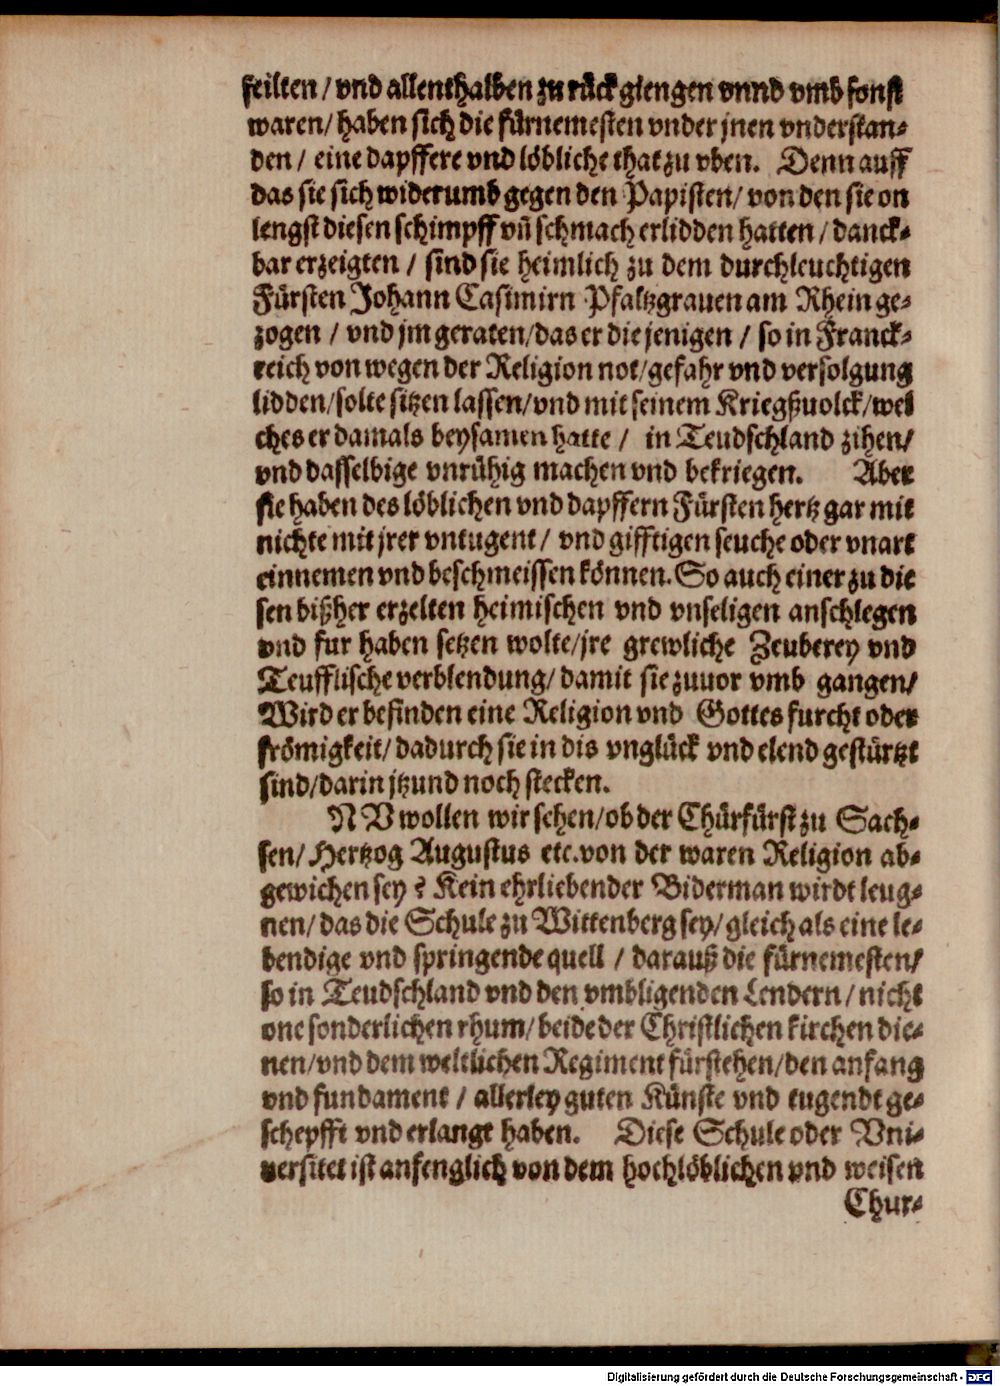 feilten / vnd allenthalben zu rück giengen vnnd vmb sonst
waren / haben sich die fürnemesten vnder jnen vnderstan⸗
den / eine dapffere vnd löbliche that zu vben. Denn auff
das sie sich widerumb gegen den Papisten / von den sie on
lengst diesen schimpff vñ schmach erlidden hatten / danck⸗
bar erzeigten / sind sie heimlich zu dem durchleuchtigen
Fürsten Johann Casimirn Pfaltzgrauen am Rhein ge⸗
zogen / vnd jm geraten / das er die jenigen / so in Franck⸗
reich von wegen der Religion not / gefahr vnd verfolgung
lidden / solte sitzen lassen / vnd mit seinem Kriegßuolck / wel
ches er damals beysamen hatte / in Teudschland zihen /
vnd dasselbige vnrühig machen vnd bekriegen. Aber
sie haben des löblichen vnd dapffern Fürsten hertz gar mit
nichte mit jrer vntugent / vnd gifftigen seuche oder vnart
einnemen vnd beschmeissen können. So auch einer zu die
sen bißher erzelten heimischen vnd vnseligen anschlegen
vnd fur haben setzen wolte / jre grewliche Zeuberey vnd
Teufflische verblendung / damit sie zuuor vmb gangen /
Wird er befinden eine Religion vnd Gottes furcht oder
frömigkeit / dadurch sie in dis vnglück vnd elend gestürtzt
sind / darin jtzund noch stecken.
NV wollen wir sehen / ob der Chürfürst zu Sach⸗
sen / Hertzog Augustus etc. von der waren Religion ab⸗
gewichen sey ? Kein ehrliebender Biderman wirdt leug⸗
nen / das die Schule zu Wittenberg sey / gleich als eine le⸗
bendige vnd springende quell / darauß die fürnemesten /
so in Teudschland vnd den vmbligenden Lendern / nicht
one sonderlichen rhum / beide der Christlichen kirchen die⸗
nen / vnd dem weltlichen Regiment fürstehen / den anfang
vnd fundament / allerley guten Künste vnd tugendt ge⸗
schepfft vnd erlangt haben. Diese Schule oder Vni⸗
uersitet ist anfenglich von dem hochlöblichen vnd weisen
Chur⸗
Digitalisierung gefördert durch die Deutsche Forschungsgemeinschaft - DFG